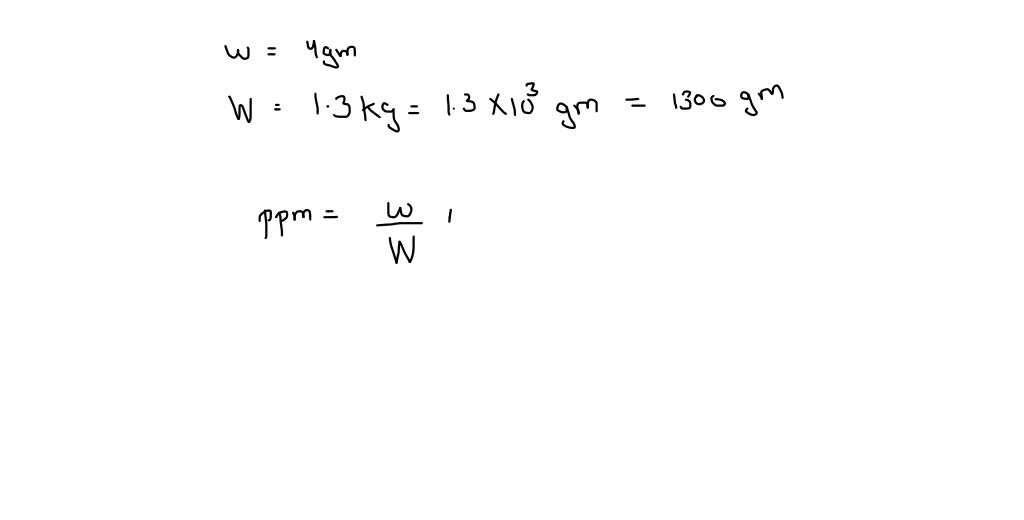 w = 4gm
W = 1.3 kg = 1.3 × 10³ gm = 1300 gm
ppm = w/W